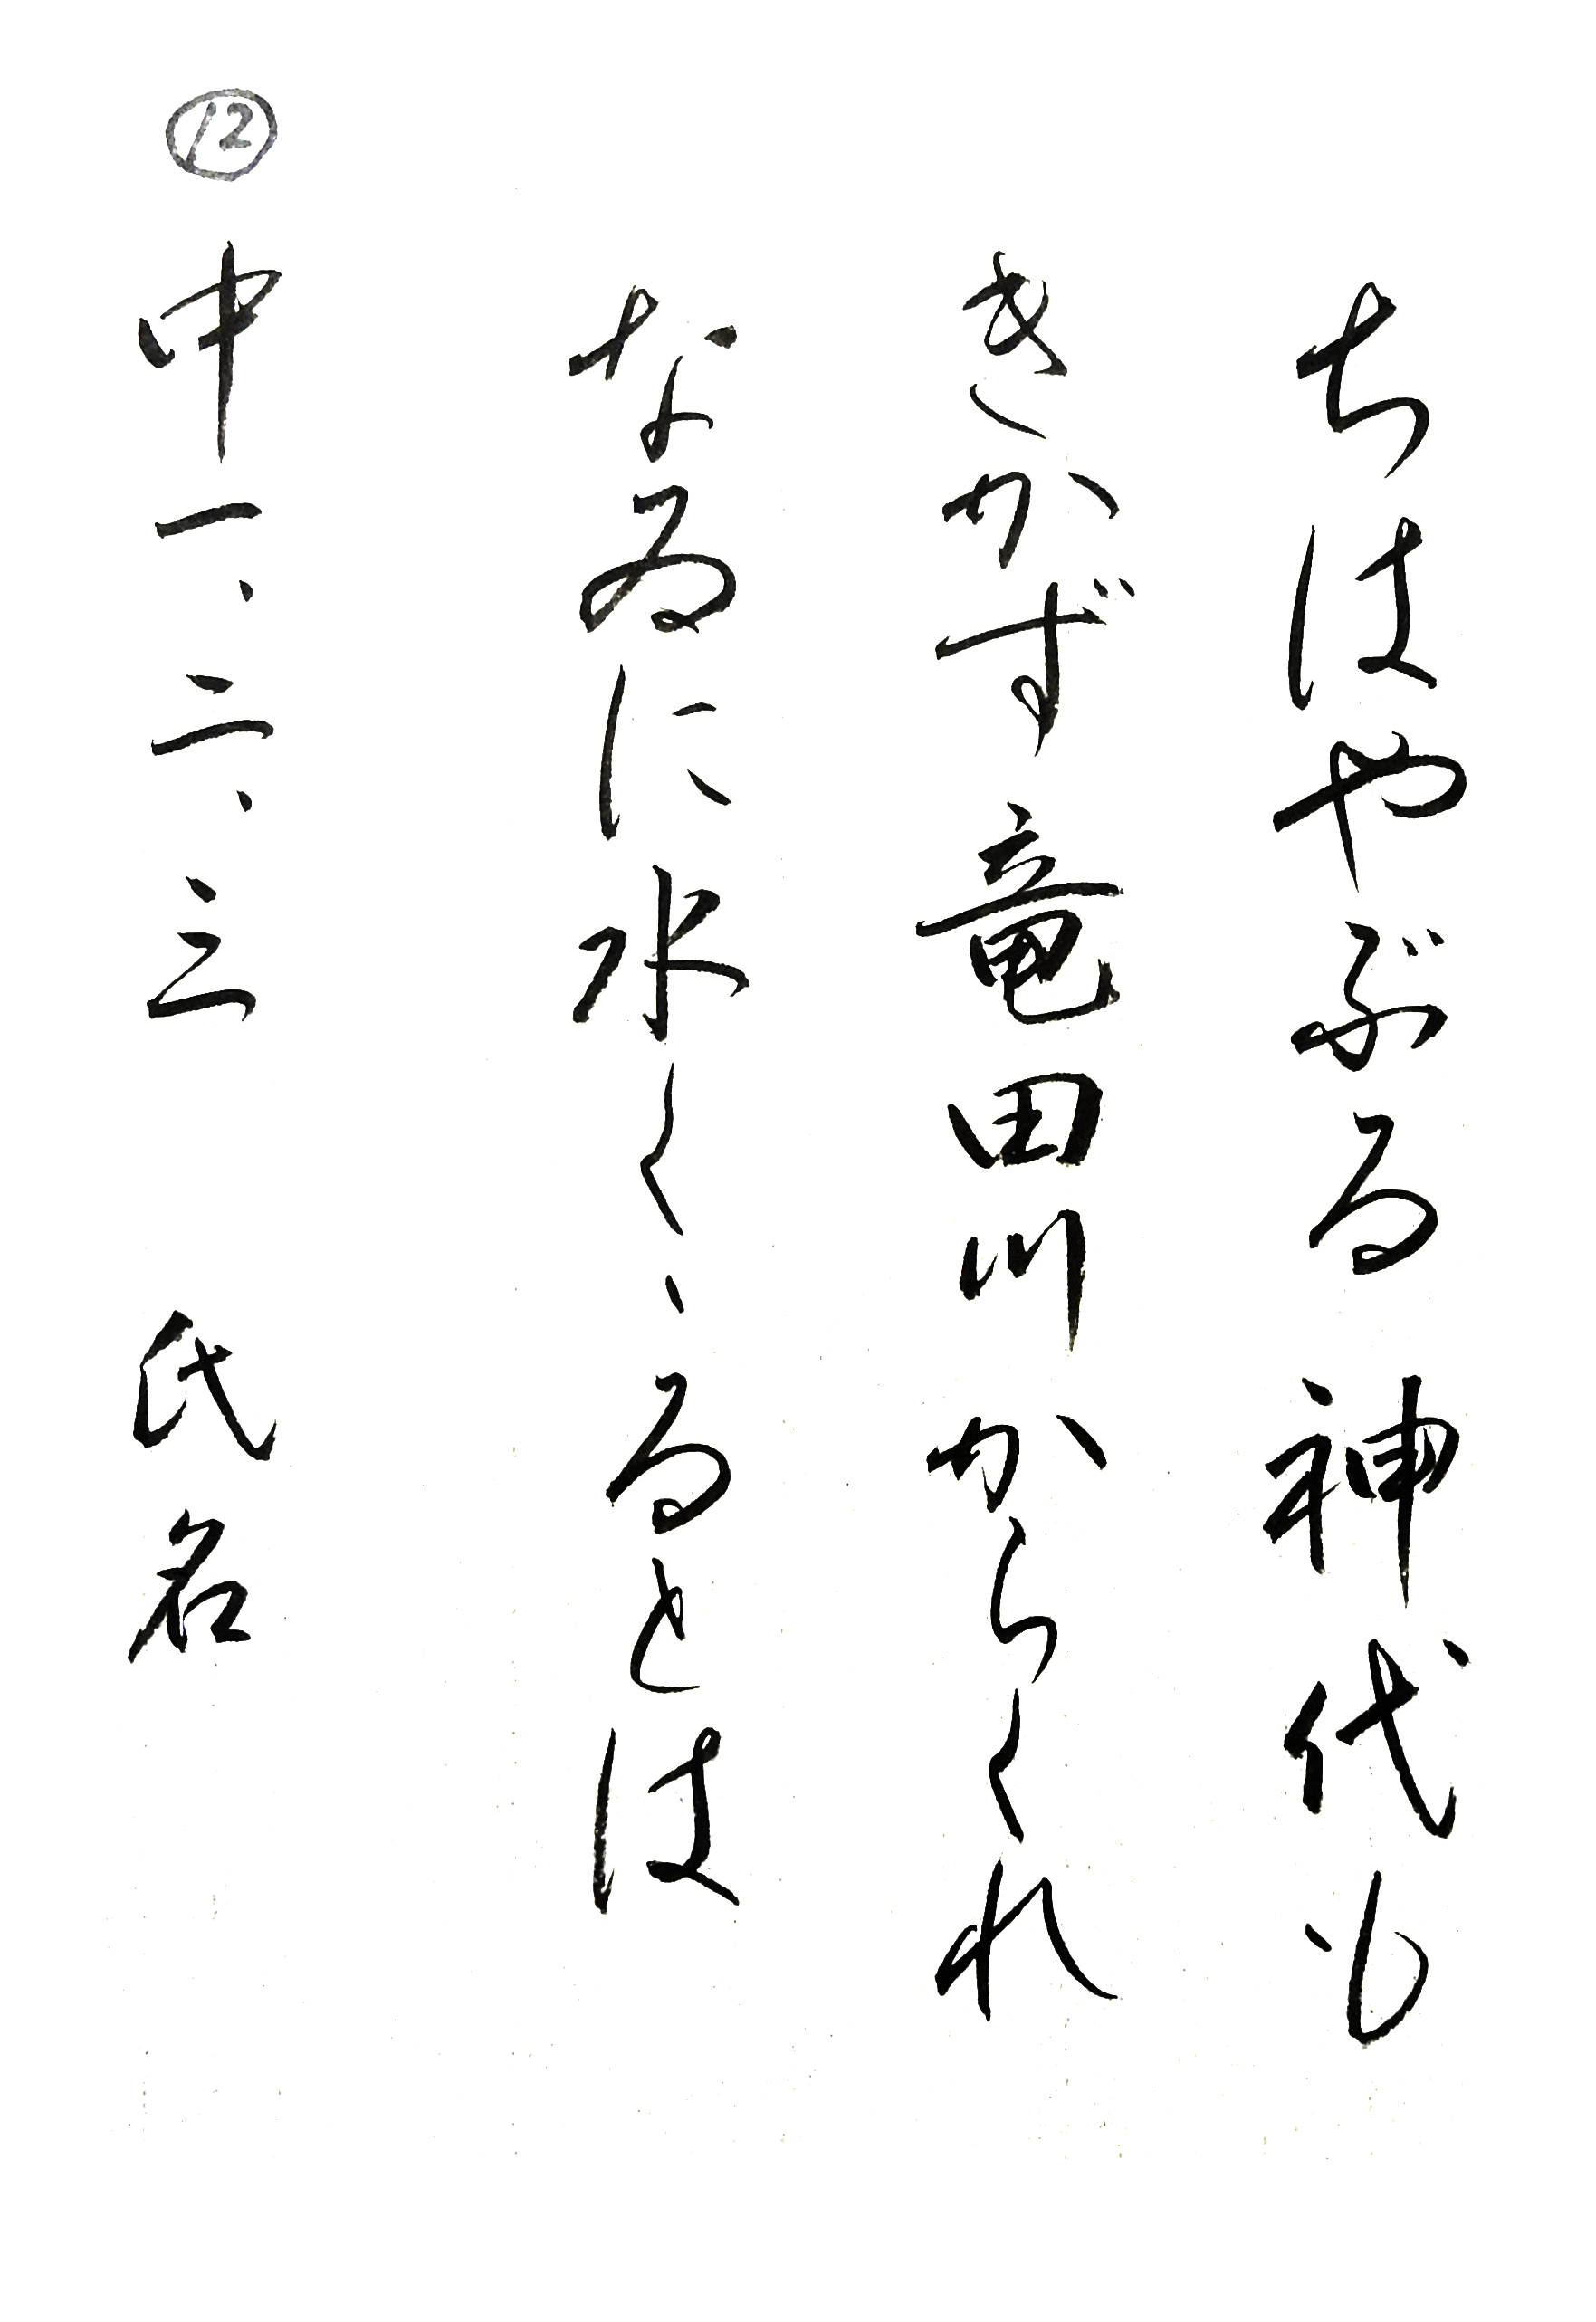 ちはやぶる神代も
きかず竜田川からくれ
なゐに水くゝるとは
⑫ 中一、二、三 氏名